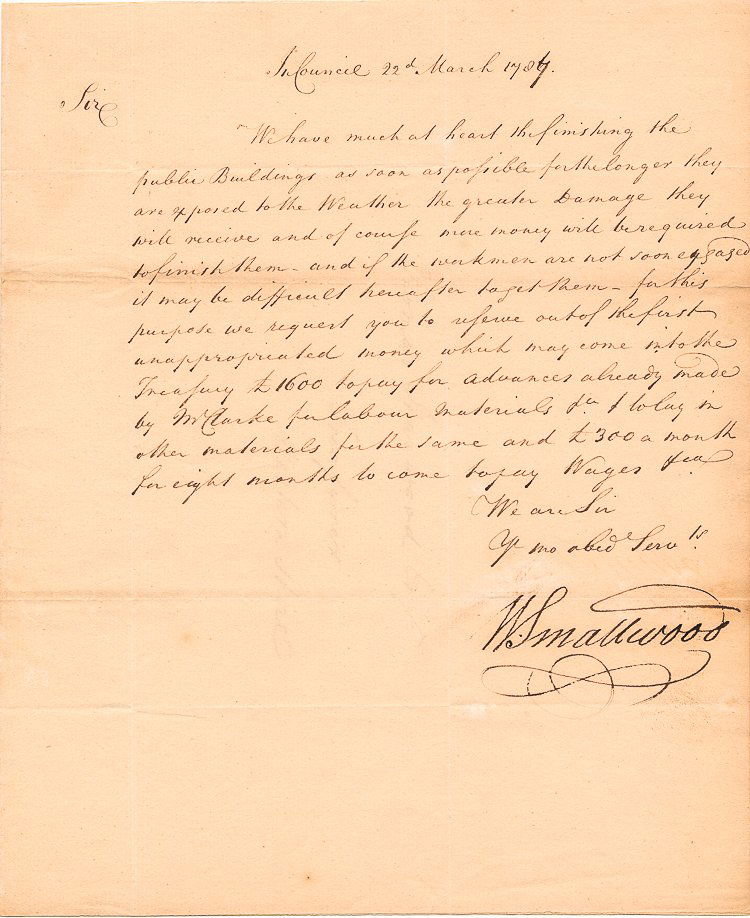 In Council 22d March 1787.
Sir
We have much at heart the finishing the
public Buildings as soon as possible for the longer they
are exposed to the Weather the greater Damage they
will receive and of course more money will be required
to finish them - and if the workmen are not soon engaged
it may be difficult hereafter to get them - for this
purpose we request you to reserve out of the first
unappropriated money which may come into the
Treasury £1600 to pay for advances already made
by Mr Clarke for labour Materials &ca & to lay in
other materials for the same and £300 a month
for eight months to come to pay Wages &ca
We are Sir
Yr mo obed Servts.
W. Smallwood